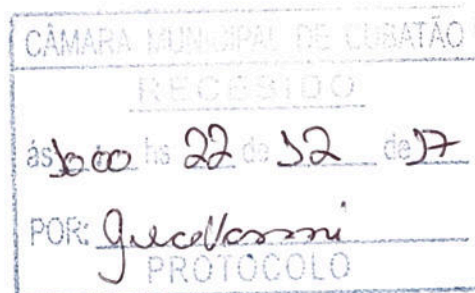 CÂMARA MUNICIPAL DE CUBATÃO
RECEBIDO
ás 1000 hs 22 de 12 de 17
POR:
PROTOCOLO